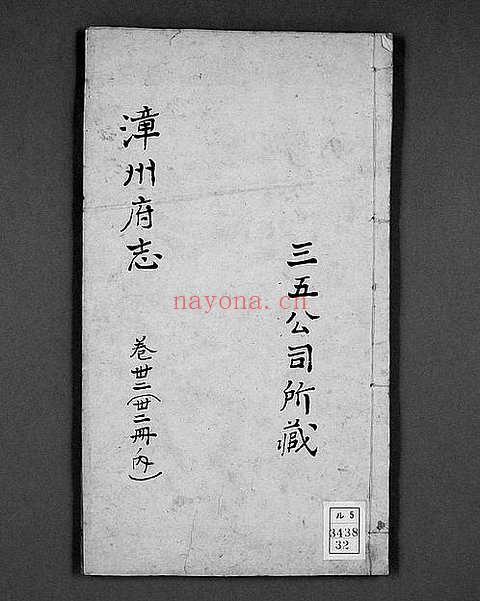 三五公司所蔵
漳州府志
巻卅二(卅二冊ノ内)
nayona.cn
ル5
3438
32